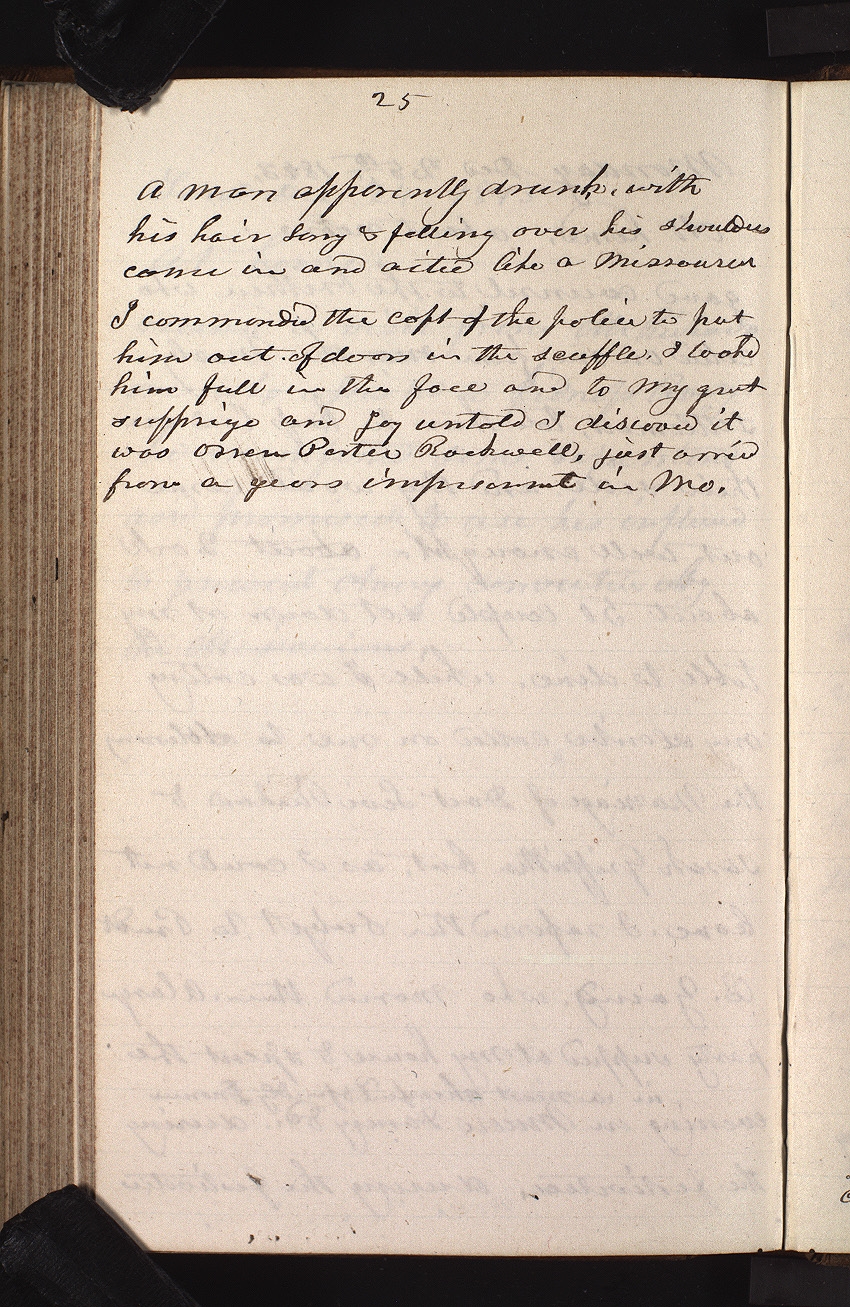 25
A man apperently drunk, with
his hair long & falling over his shoulders
came in and acted like a Missourier
I commanded the capt of the police to put
him out of doors in the scuffle, I looked
him full in the face and to My grat
supprize and Joy untold I discoved it
was Orren Porter Rockwell, just arrid
from a years imprisonmt in Mo.